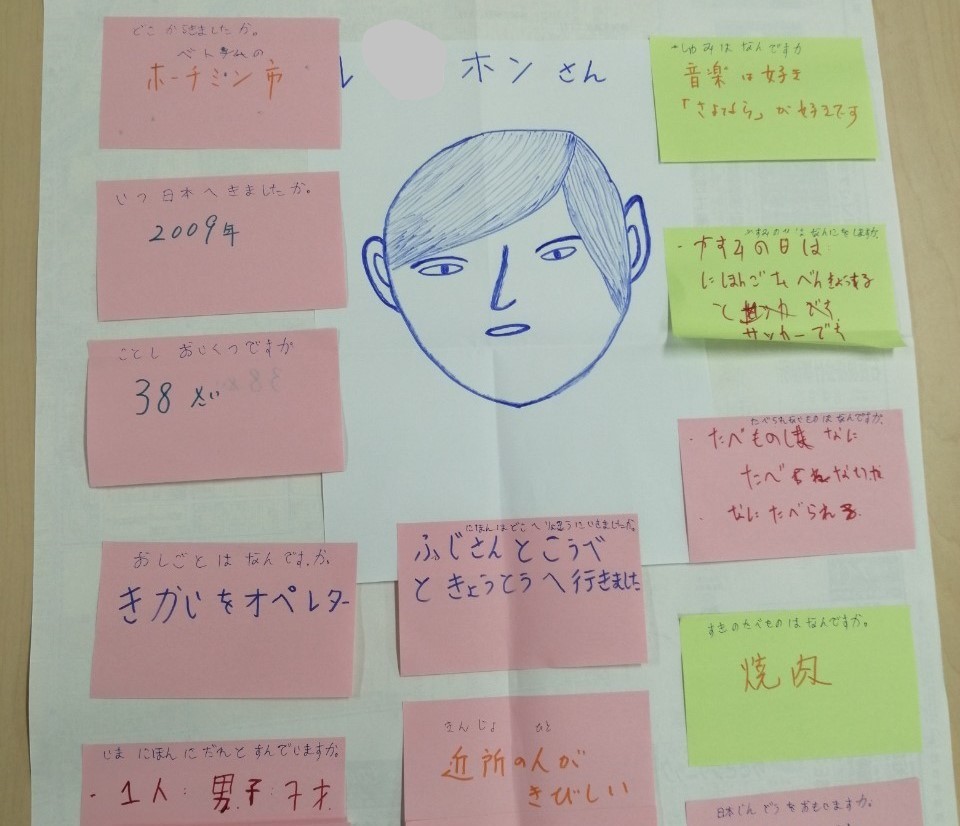 どこからきましたか。
ベトナムの
ホーチミン市
いつ日本へきましたか。
2009年
ことし おいくつですか
38さい
おしごとは なんですか。
きかいをオペレター
いま にほんに だれと すんでいますか。
・1人: 男子:7才
ル ホンさん
にほんはどこへ りょこうにいきましたか。
ふじさんとこうべ
ときょうとうへ行きました
きんじょ ひと
近所の人が
きびしい
・しゅみは なんですか
音楽は好き
「さよなら」が好きです
やすみのひは なにをしますか。
・やすみの日は
にほんごをべんきょうする
と です
サッカーです
たべられないものはなんですか。
・たべものは なに
たべ ないか
・なにたべられる
すきのたべものはなんですか。
焼肉
日本じんどうをおもいますか。